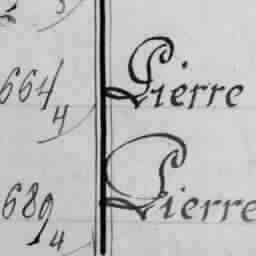 664/4 Pierre
689/4 Pierre